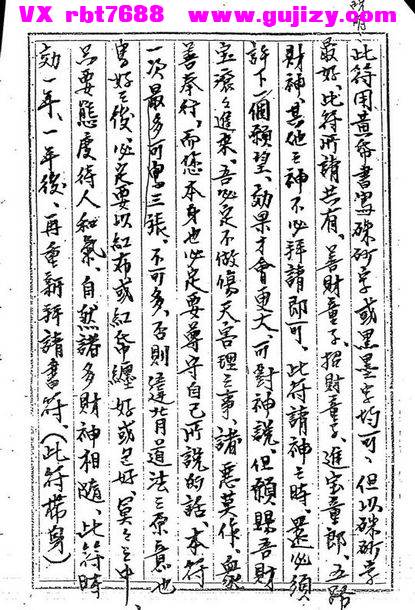 VX rbt7688 www.gujizy.com
此符用黃帋書寫硃砂字或黑墨字均可、但以硃砂字
最好、此符所請共有、善財童子、招財童子、進宝童郎、五路
財神、其他之神不必拜請即可、此符請神之時、還必須
許下一個願望、効果才會更大、可對神說、但願賜吾財
宝滾々進來、吾必定不做傷天害理之事、諸惡莫作、眾
善奉行、而您本身也必定要尊守自己所說的話、本符
一次最多可寫三張、不可多、否則違背道法之原意也
寫好之後、必定要以紅布或紅帋纏好或包好、冥々之中
只要態度待人和氣、自然諸多財神相隨、此符時
効一年、一年後、再重新拜請書符、(此符帶身)